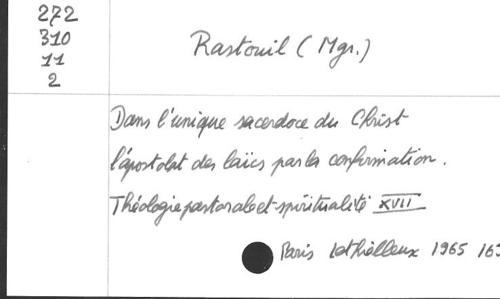 272
310
11
2
Rastouil (Mgr.)
Dans l'unique sacerdoce du Christ
l'apostolat des laïcs par la confirmation.
Théologie pastorale et spiritualité XVII
Paris Lethielleux 1965 163